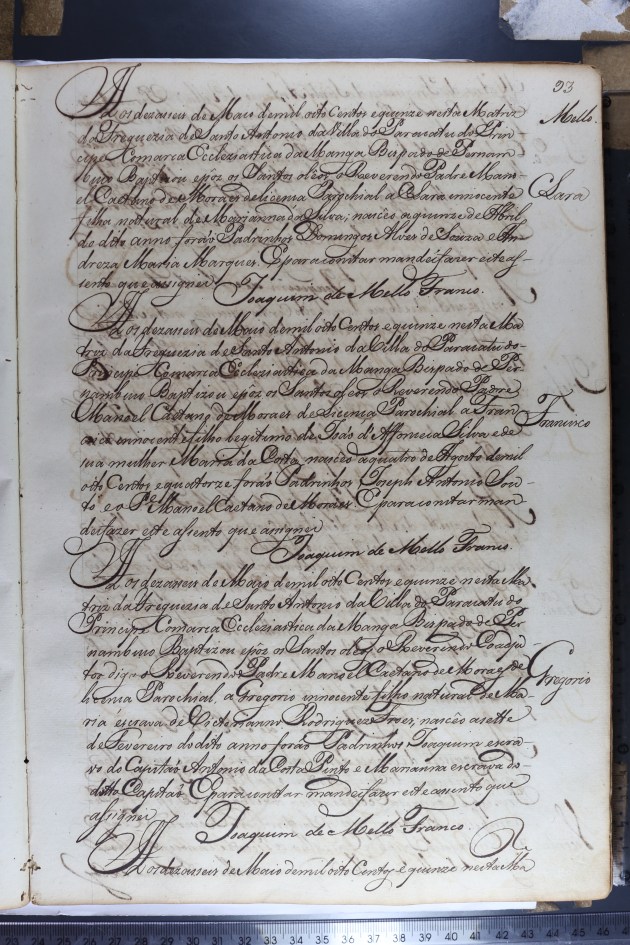 93
Mello.
Aos dezasseis de Maio de mil oito Centos e quinze nesta Matriz
da Freguezia de Santo Antonio da Villa do Paracatu do Prin-
cipe Comarca Ecclesiastica da Manga Bispado de Pernam-
buco Baptizou e poz os Santos oleos o Reverendo Padre Mano-
el Caetano de Moraes de licensa Parochial a Clara innocente
Clara
filha natural de Marianna da Silva; nasceo a quinze de Abril
do dito anno forão Padrinhos Domingos Alves de Souza e An-
dreza Maria Marques. E para constar mandei fazer este as-
sento que assignei
Joaquim de Mello Franco.
Aos dezasseis de Maio de mil oito Centos e quinze nesta Ma-
triz da Freguezia de Santo Antonio da Villa do Paracatu do
Principe Comarca Ecclesiastica da Manga Bispado de Per
nambuco Baptizou e poz os Santos oleos o Reverendo Padre
Manoel Caetano de Moraes de Licensa Parochial a Fran
Francisco
cisco innocente filho legitimo de João d'Affonseca Silva e de
sua mulher Maria da Costa, nasceo a quatro de Agosto de mil
oito Centos e quatorze forão Padrinhos Joseph Antonio Sou-
to e o Pe. Manoel Caetano de Moraes. E para constar man
dei fazer este assento que assignei
Joaquim de Mello Franco.
Aos dezasseis de Maio de mil oito Centos e quinze nesta Ma-
triz da Freguezia de Santo Antonio da Villa do Paracatu do
Principe Comarca Ecclesiastica da Manga Bispado de Per
nambuco Baptizou e poz os Santos oleos o Reverendo Coadju-
tor digo o Reverendo Padre Manoel Caetano de Moraes de
Gregorio
licensa Parochial, a Gregorio innocente filho natural de Ma-
ria escrava de Victorianno Rodrigues Froes; nasceo a sette
de Fevereiro do dito anno forão Padrinhos Joaquim escra-
vo do Capitão Antonio da Costa Pinto e Marianna escrava do
ditto Capitão. E para constar mandei fazer este assento que
assignei
Joaquim de Mello Franco.
Aos dezasseis de Maio de mil oito Centos e quinze nesta Ma